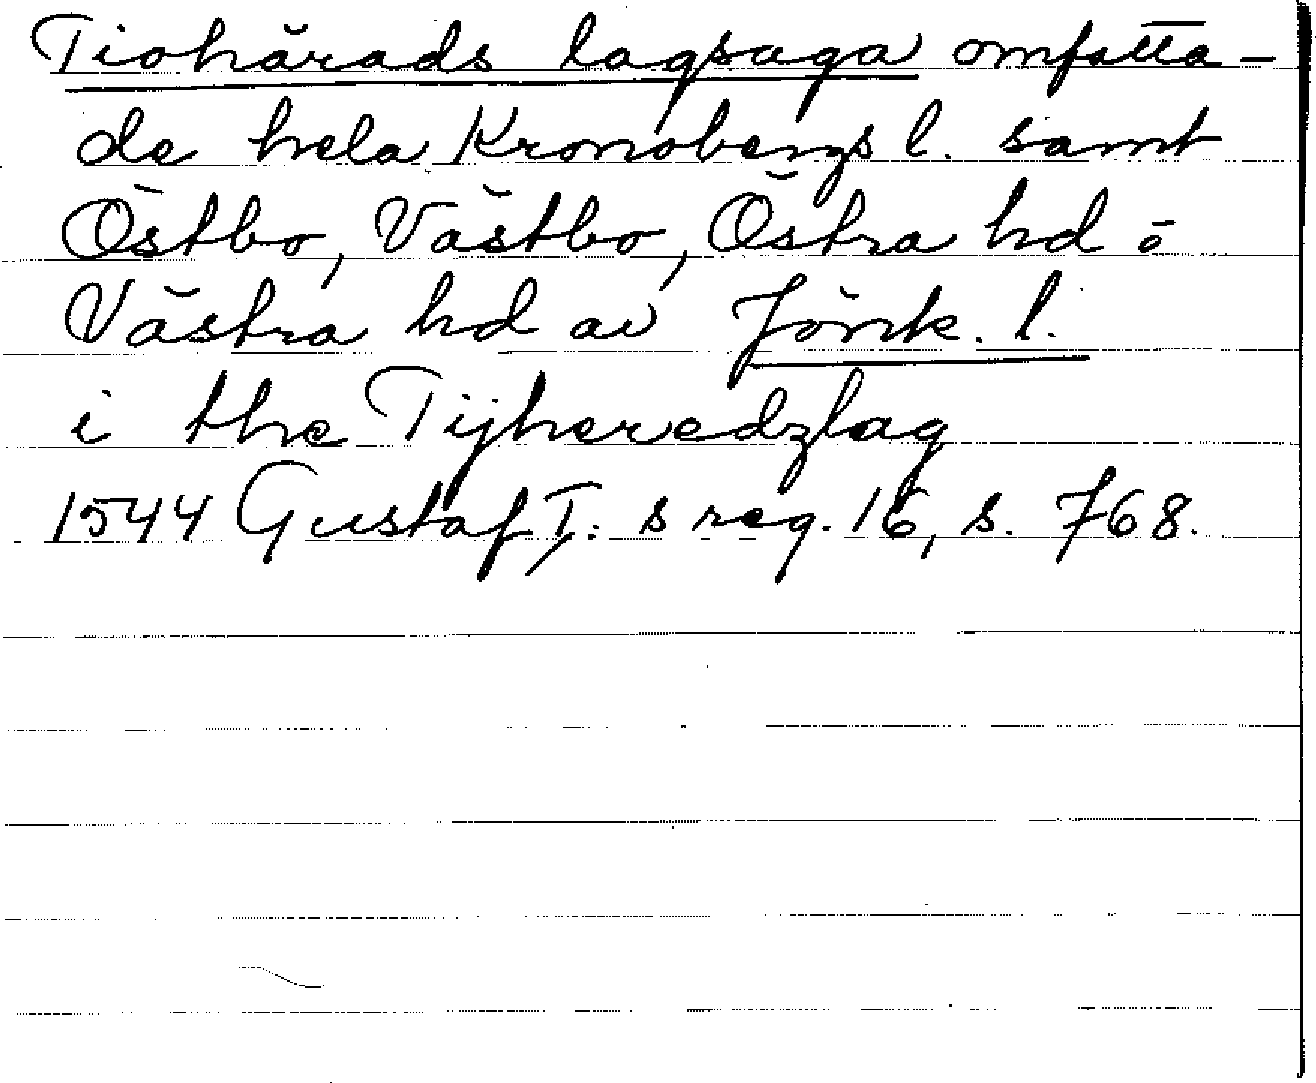 Tiohärads lagsaga omfatta-
de hela Kronobergs l. samt
Östbo, Västbo, Östra hd o
Västra hd av Jönk. l.
i the Tijheredzlag
1544 Gustaf I: s reg. 16, s. 768.